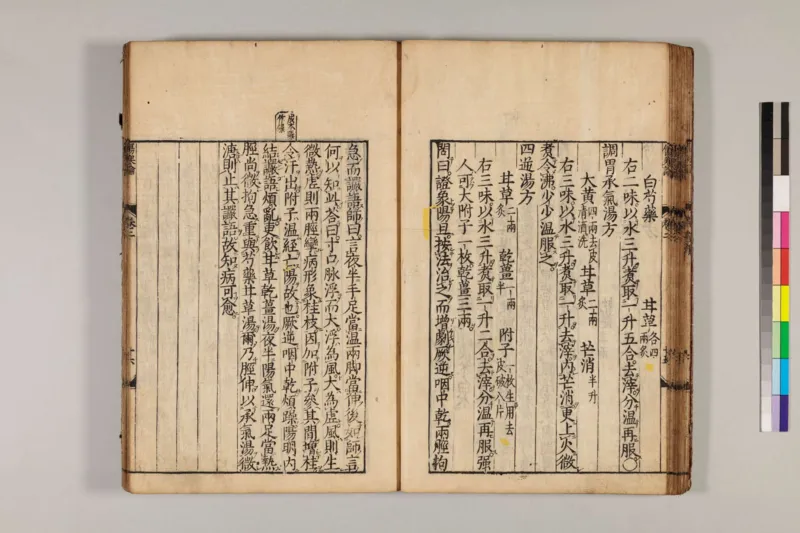 白芍藥 甘草各四兩炙
右二味以水三升煮取一升五合去滓分温再服○
調胃承氣湯方
大黄四兩去皮清酒洗 甘草二兩炙 芒消半升
右三味以水三升煮取一升去滓内芒消更上火微
煮令沸少少温服之
四逆湯方
甘草二兩炙 乾薑一兩半 附子一枚生用去皮破八片
右三味以水三升煮取一升二合去滓分温再服强
人可大附子一枚乾薑三兩
問曰證象陽旦按法治之而增劇厥逆咽中乾兩脛拘
急而讝語師曰言夜半手足當温兩脚當伸後如師言
何以知此答曰寸口脉浮而大浮為風大為虚風則生
微熱虚則兩脛攣病形象桂枝因加附子參其間増桂
令汗出附子温經亡陽故也厥逆咽中乾煩躁陽明内
結讝語煩亂更飲甘草乾薑湯夜半陽氣還兩足當熱
脛尚微拘急重與芍藥甘草湯爾乃脛伸以承氣湯微
溏則止其讝語故知病可愈